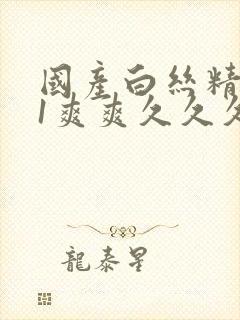 國產白絲精
1爽爽久久久
龍泰星